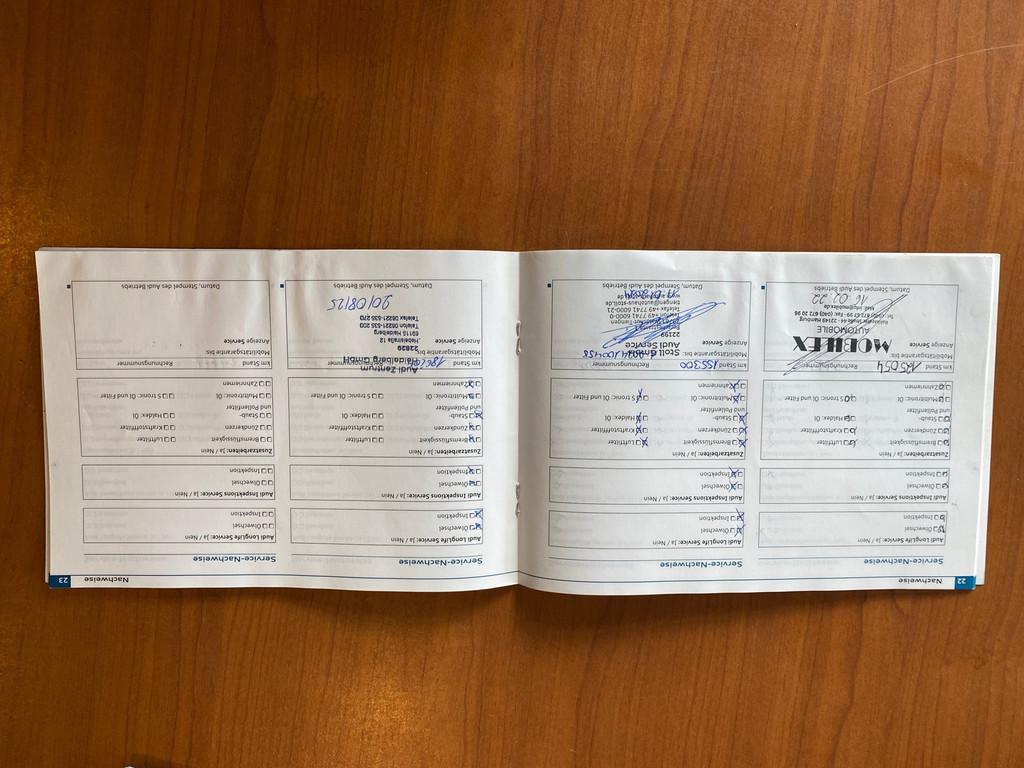 22 Nachweise
Service-Nachweise
Audi LongLife Service: Ja / Nein
Ölwechsel
Inspektion
Audi Inspektions Service: Ja / Nein
Ölwechsel
Inspektion
Zusatzarbeiten: Ja / Nein
Bremsflüssigkeit Luftfilter
Zündkerzen Kraftstofffilter
Staub- Haldex: Öl
und Pollenfilter
Multitronic: Öl S tronic: Öl und Filter
Zahnriemen
km Stand Rechnungsnummer
125054
Mobilitätsgarantie bis:
Anzeige Service
MOBILEX
AUTOMOBILE
16 02 22
Datum, Stempel des Audi Betriebs
Service-Nachweise
Audi LongLife Service: Ja / Nein
Ölwechsel
Inspektion
Audi Inspektions Service: Ja / Nein
Ölwechsel
Inspektion
Zusatzarbeiten: Ja / Nein
Bremsflüssigkeit Luftfilter
Zündkerzen Kraftstofffilter
Staub- Haldex: Öl
und Pollenfilter
Multitronic: Öl S tronic: Öl und Filter
Zahnriemen
km Stand Rechnungsnummer
155300
Mobilitätsgarantie bis:
Anzeige Service
Stoll GmbH
Audi Service
22199
Telefon +49 7741 6000-0
Telefax +49 7741 6000-21
tiengen@autohaus-stoll.de
Datum, Stempel des Audi Betriebs
Nachweise 23
Service-Nachweise
Audi LongLife Service: Ja / Nein
Ölwechsel
Inspektion
Audi Inspektions Service: Ja / Nein
Ölwechsel
Inspektion
Zusatzarbeiten: Ja / Nein
Bremsflüssigkeit Luftfilter
Zündkerzen Kraftstofffilter
Staub- Haldex: Öl
und Pollenfilter
Multitronic: Öl S tronic: Öl und Filter
Zahnriemen
km Stand Rechnungsnummer
Mobilitätsgarantie bis:
Anzeige Service
Audi Zentrum
Heidelberg GmbH
22829
Hebelstraße 12
69115 Heidelberg
Telefon 06221-535 200
Telefax 06221-535 270
20/08/25
Datum, Stempel des Audi Betriebs
Service-Nachweise
Audi LongLife Service: Ja / Nein
Ölwechsel
Inspektion
Audi Inspektions Service: Ja / Nein
Ölwechsel
Inspektion
Zusatzarbeiten: Ja / Nein
Bremsflüssigkeit Luftfilter
Zündkerzen Kraftstofffilter
Staub- Haldex: Öl
und Pollenfilter
Multitronic: Öl S tronic: Öl und Filter
Zahnriemen
km Stand Rechnungsnummer
Mobilitätsgarantie bis:
Anzeige Service
Datum, Stempel des Audi Betriebs